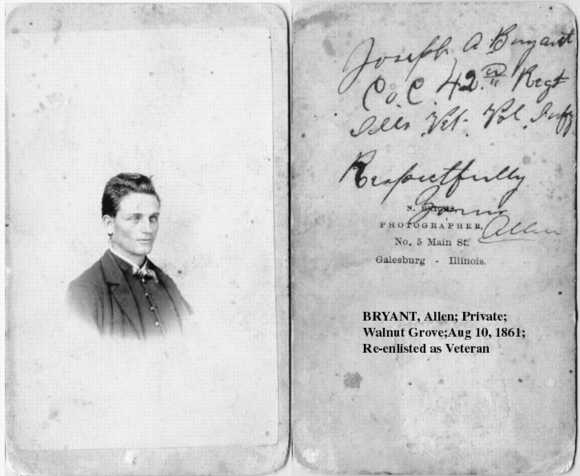 Joseph A Bryant
Co. C. 42nd Regt
Ills Vet. Vol. Inf
Respectfully
Allen
PHOTOGRAPHER,
No. 5 Main St.
Galesburg - Illinois.
BRYANT, Allen; Private;
Walnut Grove;Aug 10, 1861;
Re-enlisted as Veteran